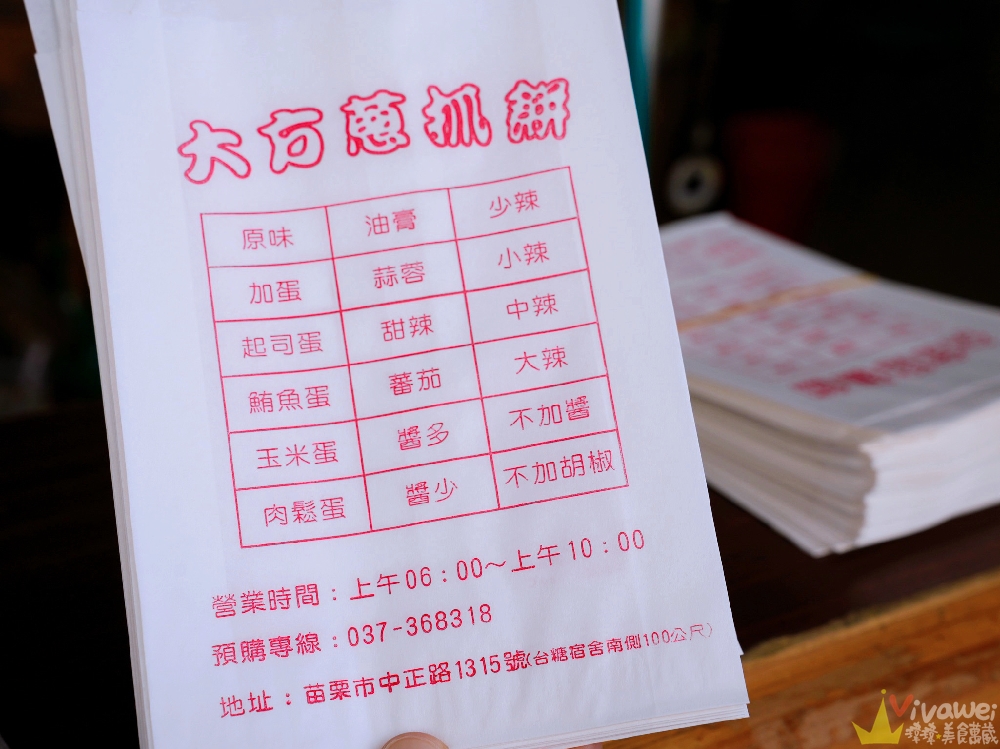 大方蔥抓餅
原味 油膏 少辣
加蛋 蒜蓉 小辣
起司蛋 甜辣 中辣
鮪魚蛋 蕃茄 大辣
玉米蛋 醬多 不加醬
肉鬆蛋 醬少 不加胡椒
營業時間：上午06：00～上午10：00
預購專線：037-368318
地址：苗栗市中正路1315號(台糖宿舍南側100公尺)
Vivawei
美食萬歲